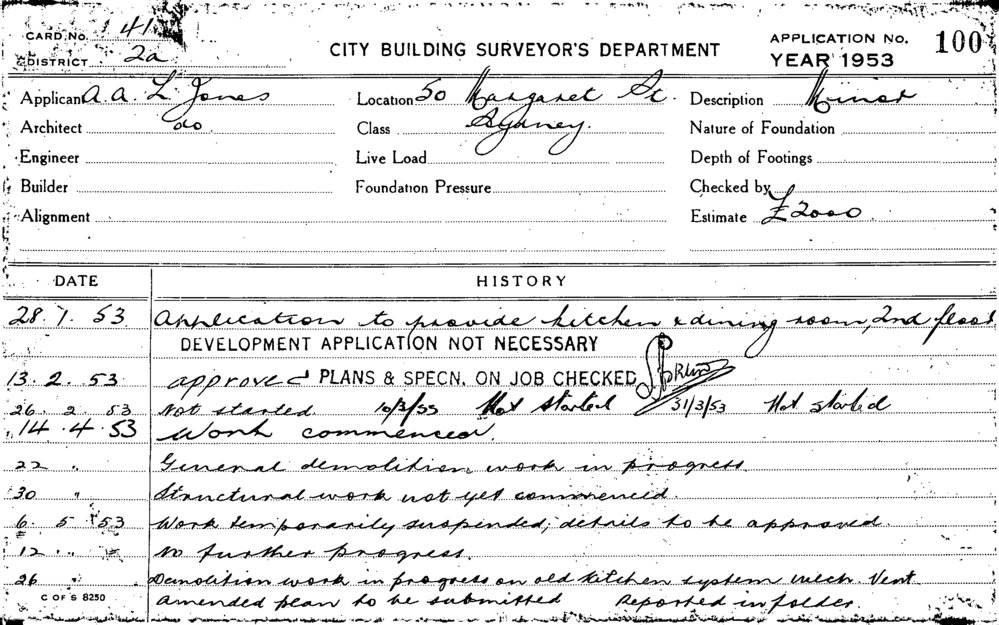 CARD No. 41
DISTRICT 2a
CITY BUILDING SURVEYOR'S DEPARTMENT
APPLICATION No. 100
YEAR 1953
Applicant A. A. L. Jones
Location 50 Margaret St.
Description Minor
Architect do
Class Sydney.
Nature of Foundation
Engineer
Live Load
Depth of Footings
Builder
Foundation Pressure
Checked by
Alignment
Estimate £2000
DATE HISTORY
28. 1. 53 Application to provide kitchen & dining room, 2nd floor
DEVELOPMENT APPLICATION NOT NECESSARY
13. 2. 53 approved PLANS & SPECN. ON JOB CHECKED
26. 2. 53 Not started 10/3/53 Not started 31/3/53 Not started
14. 4. 53 Work commenced.
22 " General demolition work in progress.
30 " Structural work not yet commenced.
6. 5. 53 Work temporarily suspended; details to be approved.
12 " " No further progress.
26 " Demolition work in progress on old kitchen system mech. Vent.
C OF S 8250
amended plan to be submitted Reported in folder